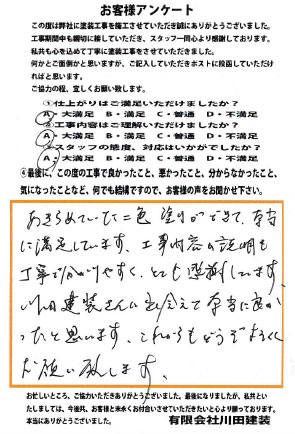 お客様アンケート
この度は弊社に塗装工事を施工させていただき誠にありがとうございました。
工事期間中も親切に接していただき、スタッフ一同心より感謝しております。
私共も心を込めて丁寧に塗装工事をさせていただきました。
何かとご面倒かと思いますが、ご記入していただきポストに投函していただけ
ればと思います。
ご協力の程、宜しくお願い致します。
①仕上がりはご満足いただけましたか？
A・大満足 B・満足 C・普通 D・不満足
②工事内容はご理解いただけましたか？
A・大満足 B・満足 C・普通 D・不満足
③スタッフの態度、対応はいかがでしたか？
A・大満足 B・満足 C・普通 D・不満足
④最後に、この度の工事で良かったこと、悪かったこと、分からなかったこと、
気になったことなど、何でも結構ですので、お客様の声をお聞かせ下さい。
あきらめていた二色塗りができて、本当
に満足しています。工事内容の説明も
丁寧で分かりやすく、とても感謝しています。
川田建装さんに出会えて本当に良か
ったと思います。これからもどうぞよろしく
お願い致します。
お忙しいところ、ご協力いただきありがとうございました。最後になりましたが、私共とい
たしましては、今後共、お客様と末永くお付合いさせていただきたいと心より願っております。
本当にありがとうございました。
有限会社川田建装